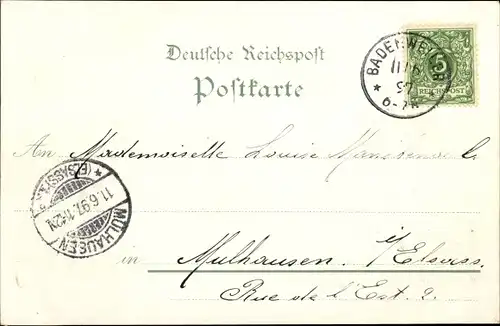 Deutsche Reichspost
Postkarte
BADENWEILER
11/6
97
6-7N
5
REICHSPOST
An Mademoiselle Louise
MÜLHAUSEN
(ELSASS)
11.6.97.
in Mulhausen i/Elsass.
Rue de l'Est 2.